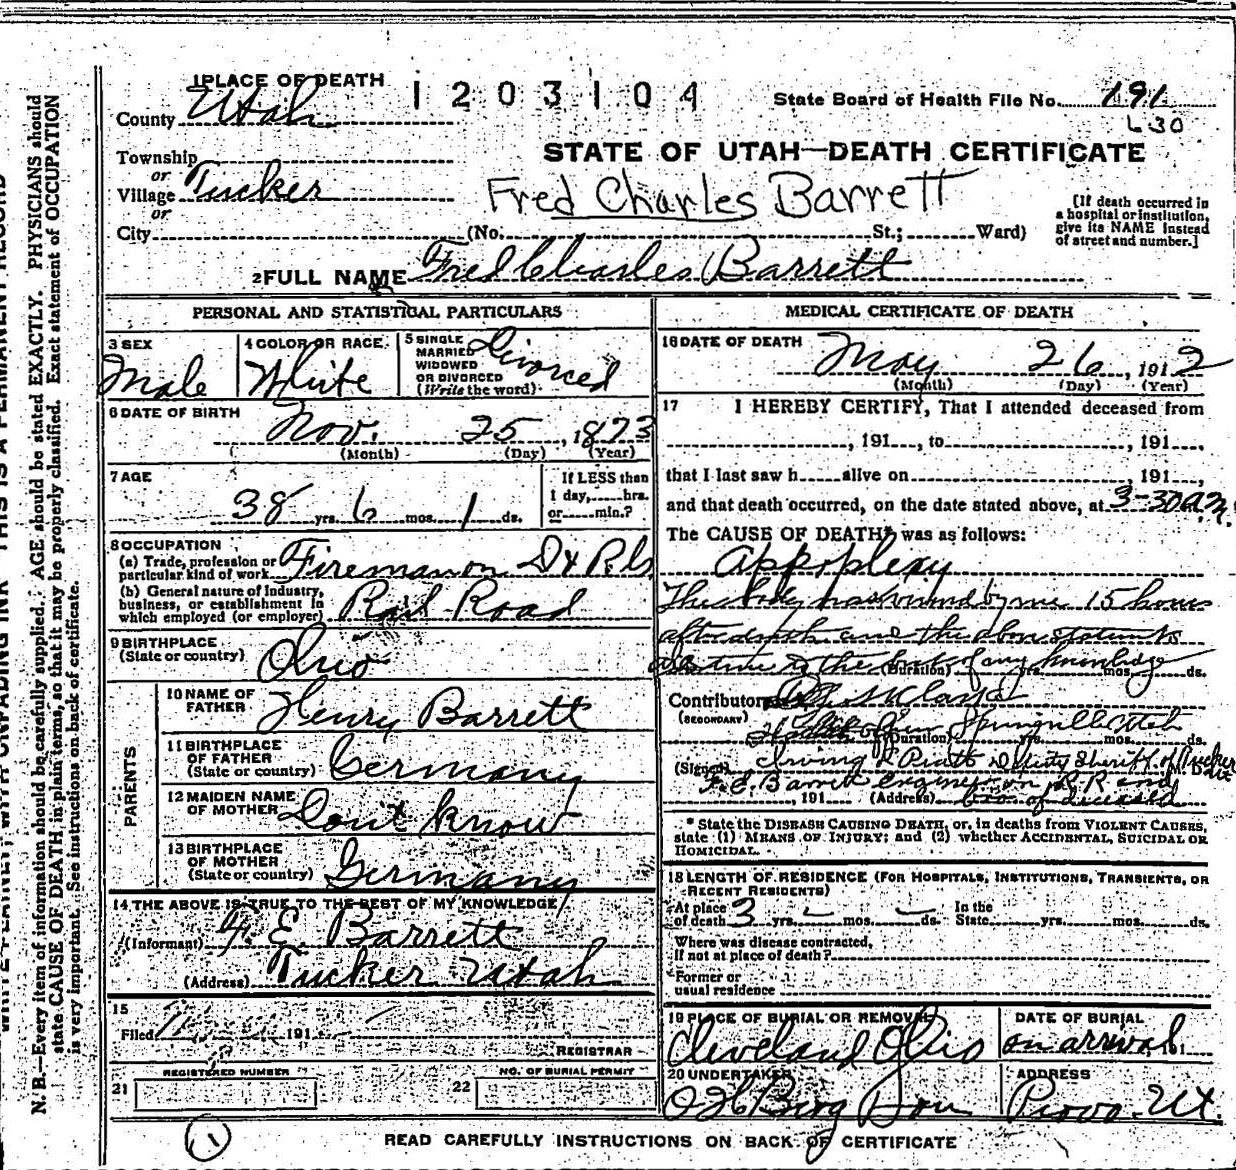 1 PLACE OF DEATH
1203104
State Board of Health File No. 191
630
County Utah
Township
or
Village Tucker
or
City (No. St.; Ward)
STATE OF UTAH—DEATH CERTIFICATE
Fred Charles Barrett
[If death occurred in a hospital or institution, give its NAME instead of street and number.]
2 FULL NAME Fred Charles Barrett
PERSONAL AND STATISTICAL PARTICULARS
3 SEX
Male
4 COLOR OR RACE
White
5 SINGLE MARRIED WIDOWED OR DIVORCED (Write the word)
Divorced
6 DATE OF BIRTH
Nov. 25, 1873
(Month) (Day) (Year)
7 AGE
38 yrs. 6 mos. 1 ds.
If LESS than 1 day, hrs. or min.?
8 OCCUPATION
(a) Trade, profession or particular kind of work Fireman on D & R.
(b) General nature of Industry, business, or establishment in which employed (or employer) Rail Road
9 BIRTHPLACE
(State or country) Ohio
PARENTS
10 NAME OF FATHER Henry Barrett
11 BIRTHPLACE OF FATHER (State or country) Germany
12 MAIDEN NAME OF MOTHER Dont know
13 BIRTHPLACE OF MOTHER (State or country) Germany
14 THE ABOVE IS TRUE TO THE BEST OF MY KNOWLEDGE
(Informant) F. E. Barrett
(Address) Tucker Utah
15
Filed 191
REGISTRAR
REGISTERED NUMBER
21
NO. OF BURIAL PERMIT
22
MEDICAL CERTIFICATE OF DEATH
16 DATE OF DEATH
May 26, 1912
(Month) (Day) (Year)
17 I HEREBY CERTIFY, That I attended deceased from
, 191 , to , 191 ,
that I last saw h alive on 191 ,
and that death occurred, on the date stated above, at 3-30 a.m.
The CAUSE OF DEATH* was as follows:
Appoplexy
The body was viewed by me 15 hours
after death and the above statements
are true to the best of my knowledge
(Duration) yrs. mos. ds.
Contributory
(SECONDARY)
Springville Utah
(Duration) yrs. mos. ds.
(Signed) Irving L Pratt Deputy Sheriff of Tucker
M. D.
F. E. Barrett Engineer on R R and
, 191 (Address) Bro of deceased
* State the DISEASE CAUSING DEATH, or, in deaths from VIOLENT CAUSES, state (1) MEANS OF INJURY; and (2) whether ACCIDENTAL, SUICIDAL OR HOMICIDAL.
18 LENGTH OF RESIDENCE (FOR HOSPITALS, INSTITUTIONS, TRANSIENTS, OR RECENT RESIDENTS)
At place of death 3 yrs. — mos. — ds. In the State yrs. mos. ds.
Where was disease contracted, if not at place of death?
Former or usual residence
19 PLACE OF BURIAL OR REMOVAL
Cleveland Ohio
DATE OF BURIAL
on arrival, 191
20 UNDERTAKER
O H Berg Son
ADDRESS
Provo. Ut.
1
READ CAREFULLY INSTRUCTIONS ON BACK OF CERTIFICATE
WRITE PLAINLY, WITH UNFADING INK—THIS IS A PERMANENT RECORD
N. B.—Every item of information should be carefully supplied. AGE should be stated EXACTLY. PHYSICIANS should
state CAUSE OF DEATH in plain terms, so that it may be properly classified. Exact statement of OCCUPATION
is very important. See instructions on back of certificate.